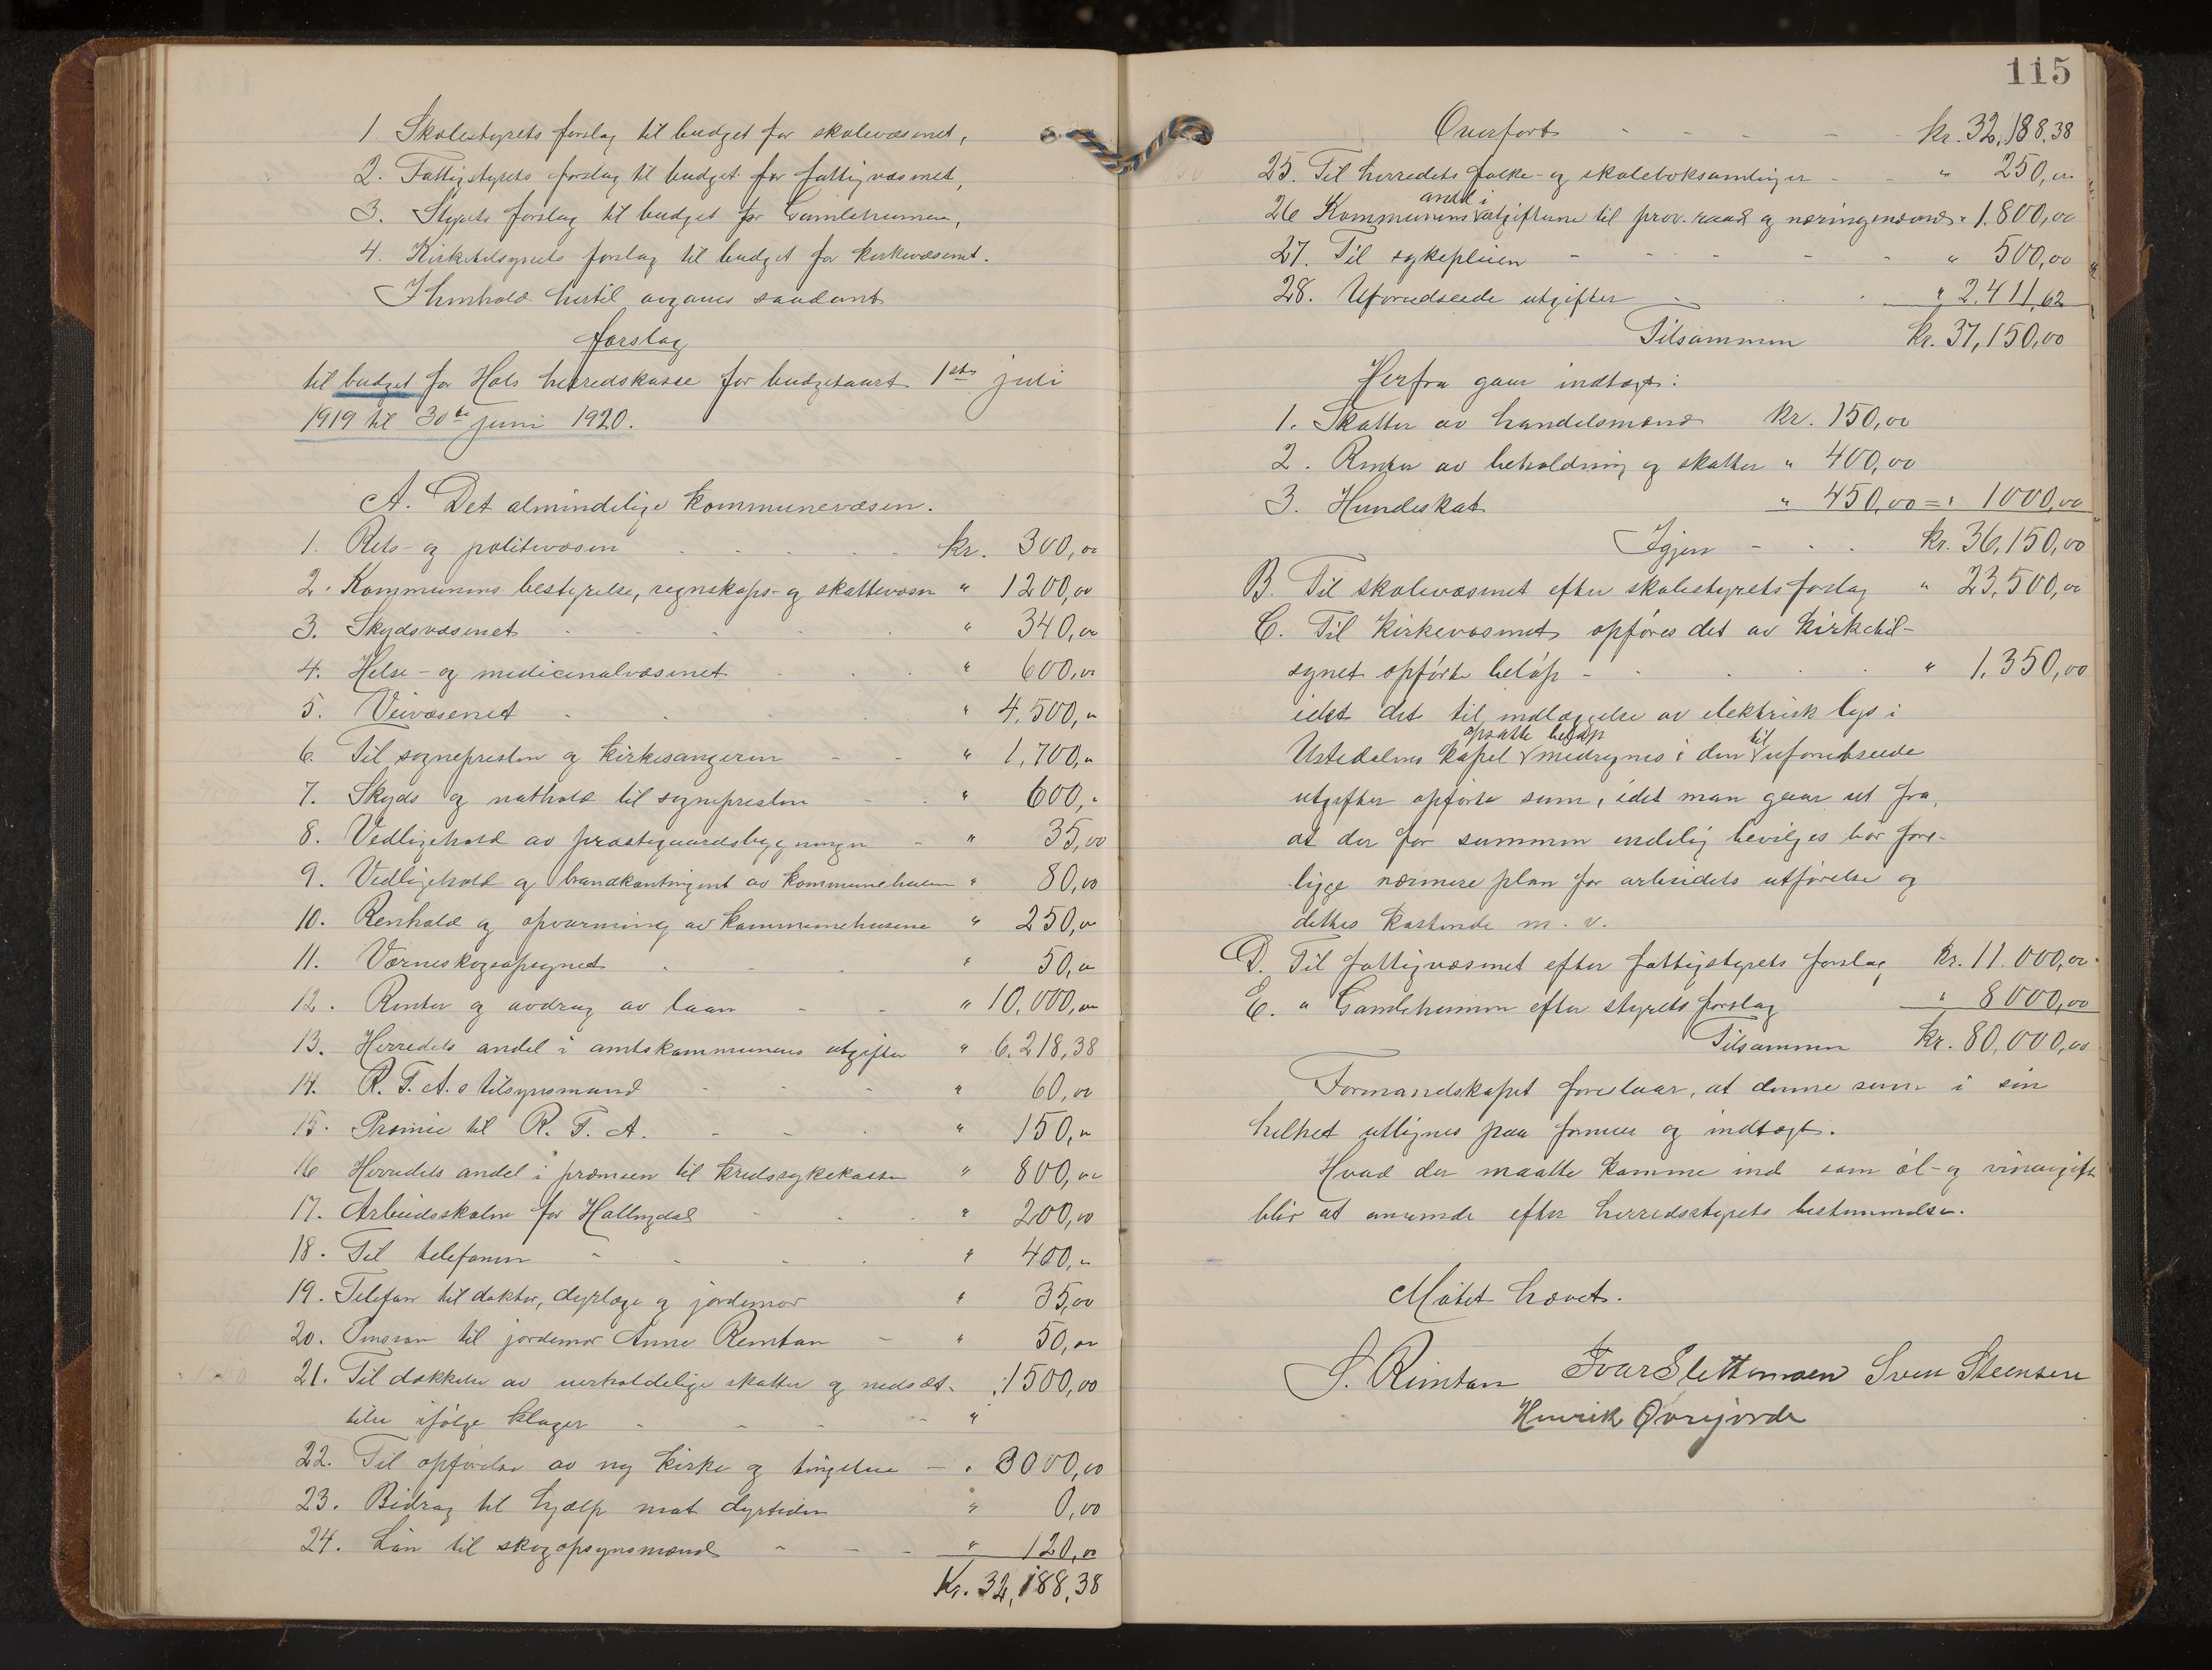 1. Skolestyrets forslag til budget for skolevæsenet,
2. Fattigstyrets forslag til budget for fattigvæsenet,
3. Styrets forslag til budget for Gamleheimen,
4. Kirketilsynets forslag til budget for kirkevæsenet.
I henhold hertil avgaves saadant
forslag
til budget for Hols herredskasse for budgetaaret 1ste juli
1919 til 30te juni 1920.
A. Det almindelige kommunevæsen.
1. Rets- og politivæsen kr. 300,00
2. Kommunens bestyrelse, regnskaps- og skattevæsen " 1200,00
3. Skydsvæsenet " 340,00
4. Helse- og medicinalvæsenet " 600,00
5. Veivæsenet " 4.500,"
6. Til sognepresten og kirkesangeren " 1,700,"
7. Skyds og nathold til sognepresten " 600,"
8. Vedlikehold av præstegaardsbygninger " 35,00
9. Vedlikehold og brandkontingent av kommunehusene " 80,00
10. Renhold og opvarming av kommunehusene " 250,00
11. Værneskogsopsynet " 50,00
12. Renter og avdrag av laan " 10,000,00
13. Herredets andel i amtskommunens utgifter " 6.218,38
14. R. F. A. s tilsynsmand " 60,00
15. Præmie til R. F. A. " 150,"
16 Herredets andel i præmien til kredssykekassen " 800,00
17. Arbeidsskolen for Hallingdal " 200,00
18. Til telefonen " 400,"
19. Telefon til doktor, dyrlæge og jordemor " 35,00
20. Pension til jordemor Anne Reintan " 50,00
21. Til dækkelse av uerholdelige skatter og nedsæt- 1500,00
telse ifølge klager "
22. Til opførelse av ny kirke og tingstue " 3000,00
23. Bidrag til hjælp mot dyrtiden " 0,00
24. Løn til skogopsynsmænd " 120,00
Kr. 32,188,38
115
Overført kr. 32,188.38
25. Til herredets folke- og skoleboksamlinger " 250,00
andel i
26 Kommunens utgifterne til prov. raad og næringsnævnd " 1.800,00
27. Til sykepleien " 500,00
28. Uforudseede utgifter " 2.411,62
Tilsammen kr. 37,150,00
Herfra gaar indtægt:
1. Skatter av handelsmænd kr. 150,00
2. Renter av beholdning og skatter " 400,00
3. Hundeskat " 450,00 = " 1000,00
Igjen kr. 36,150,00
B. Til skolevæsenet efter skolestyrets forslag " 23,500,00
C. Til kirkevæsenet opføres det av kirketil-
synet opførte beløp " 1,350,00
idet det til indlæggelse av elektrisk lys i
opsatte beløp til
Ustedalens kapel medregnes i den uforudseede
utgifter opførte sum, idet man gaar ut fra,
at der før summen endelig bevilges bør fore-
ligge nærmere plan for arbeidets utførelse og
dettes kostende m. v.
D. Til fattigvæsenet efter fattigstyrets forslag kr. 11.000,00
E. " Gamleheimen efter styrets forslag " 8000,00
Tilsammen kr. 80,000,00
Formandskapet foreslaar, at denne sum i sin
helhet utlignes paa formue og indtægt.
Hvad der maatte komme ind som øl- og vinavgift
blir at anvende efter herredsstyrets bestemmelse.
Møtet hævet.
S. Reintan Ivar Slettemoen Sven Steensen
Henrik Øvrejorde